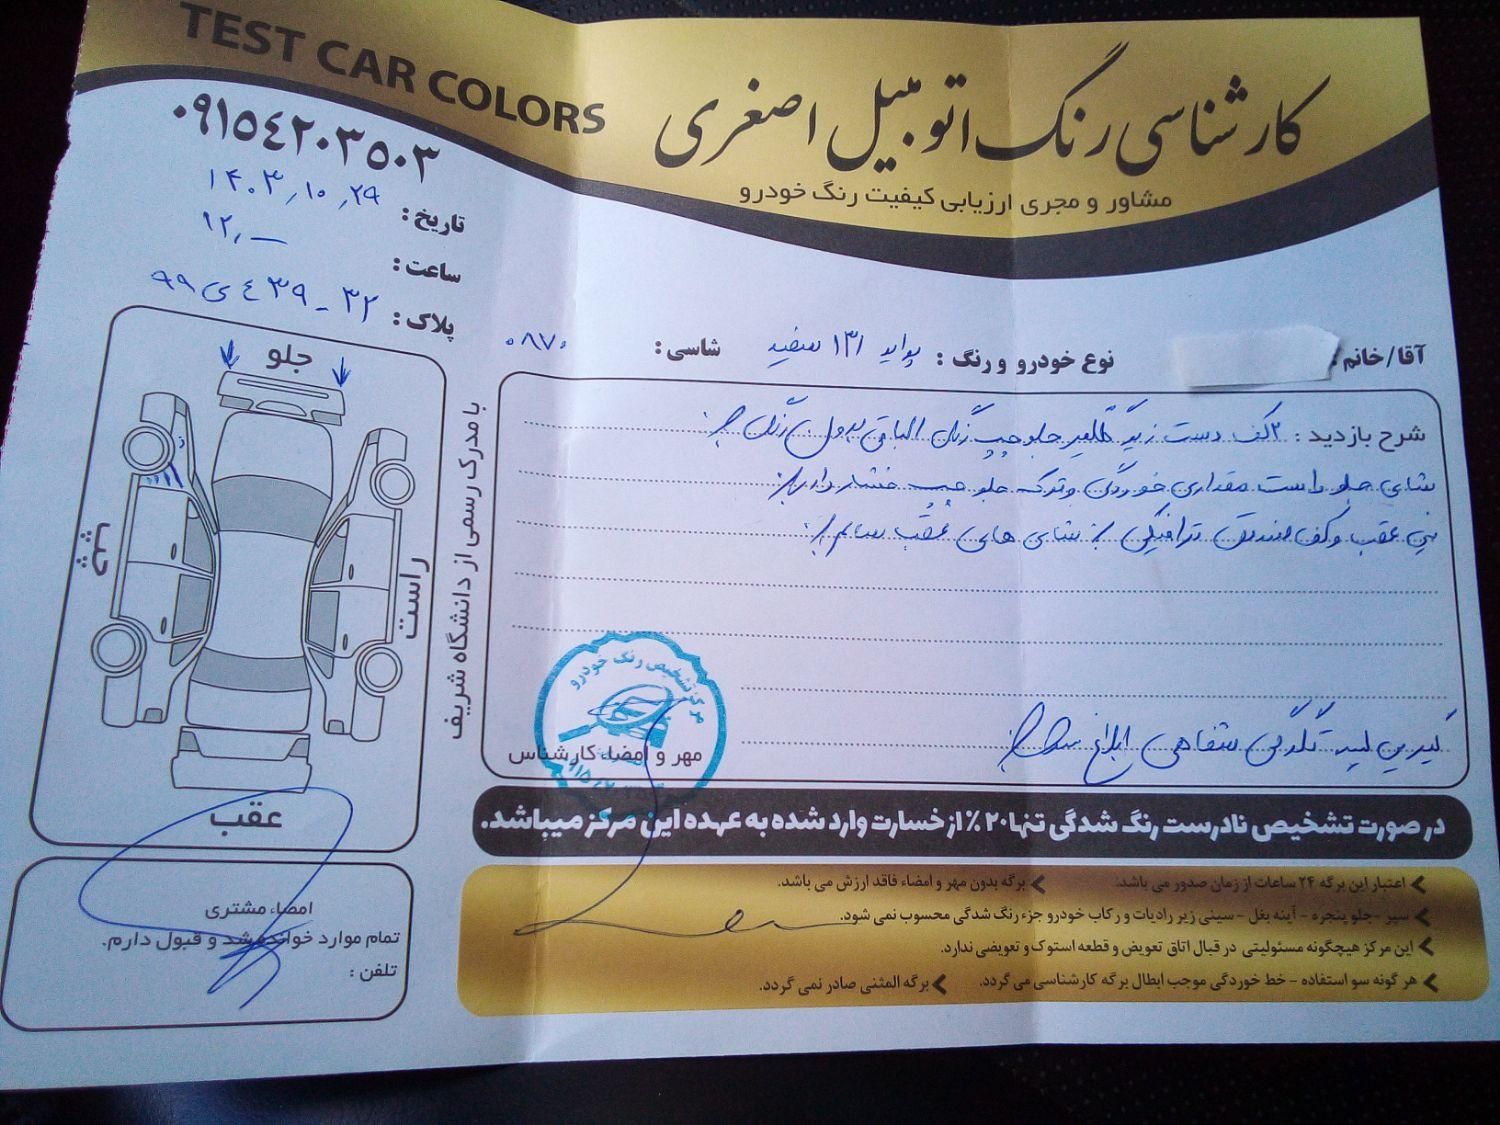 TEST CAR COLORS
کارشناسی رنگ اتومبیل اصغری
مشاور و مجری ارزیابی کیفیت رنگ خودرو
۰۹۱۵۴۲۰۳۵۰۳
تاریخ : ۱۴۰۳٫۱۰٫۲۹
ساعت : ۱۲٫ــ
پلاک : ۳۲ - ۴۳۹ ی ۹۹
آقا/خانم :
نوع خودرو و رنگ : پراید ۱۳۱ سفید
شاسی : ۰۸۷۰
شرح بازدید : ۲ کف دست زیر گلگیر جلو چپ رنگ الباقی بدون رنگ
شاسی جلو راست مقداری خوردگی و ترکه جلو چپ فشار دارد
سینی عقب و کف صندوق ترافیکی شاسی های عقب سالم
شفاهی ابلاغ شد
جلو
چپ
راست
عقب
با مدرک رسمی از دانشگاه شریف
مرکز تشخیص رنگ خودرو
مهر و امضاء کارشناس
در صورت تشخیص نادرست رنگ شدگی تنها ۲۰٪ از خسارت وارد شده به عهده این مرکز میباشد.
اعتبار این برگه ۲۴ ساعات از زمان صدور می باشد. برگه بدون مهر و امضاء فاقد ارزش می باشد.
سپر - جلو پنجره - آینه بغل - سینی زیر رادیات و رکاب خودرو جزء رنگ شدگی محسوب نمی شود.
این مرکز هیچگونه مسئولیتی در قبال اتاق تعویض و قطعه استوک و تعویضی ندارد.
هر گونه سو استفاده - خط خوردگی موجب ابطال برگه کارشناسی می گردد. برگه المثنی صادر نمی گردد.
امضاء مشتری
تمام موارد خوانده شد و قبول دارم.
تلفن :